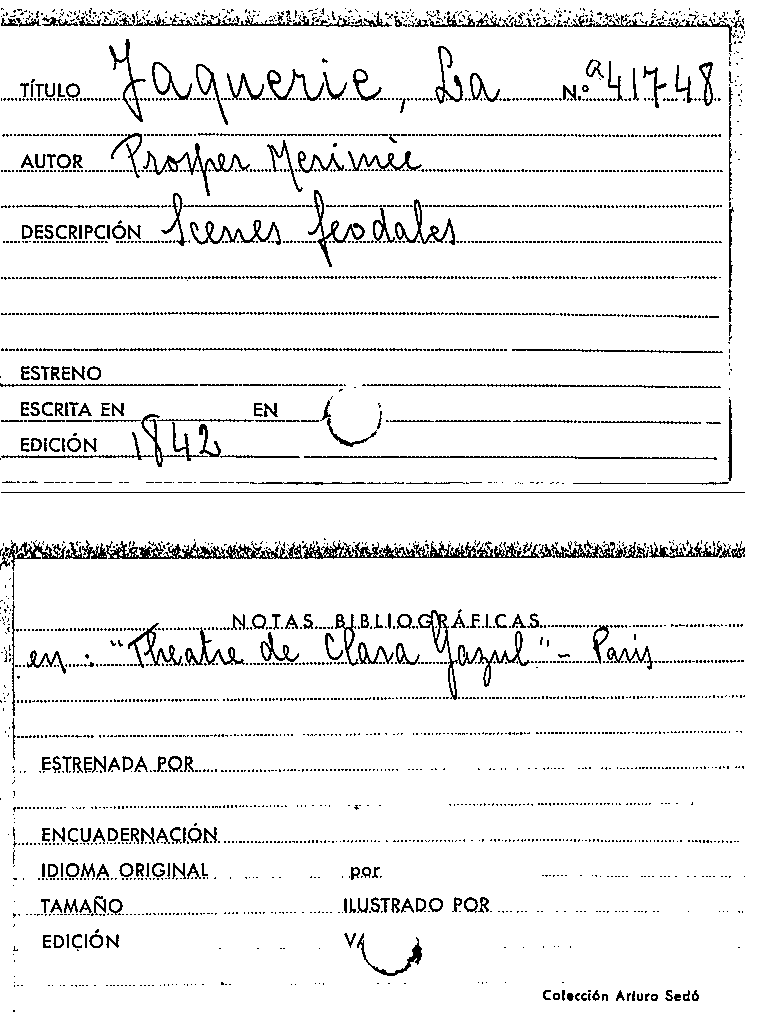 TÍTULO Jaquerie, La N.º a 41748
AUTOR Prosper Merimée
DESCRIPCIÓN Scenes feodales
ESTRENO
ESCRITA EN EN
EDICIÓN 1842
NOTAS BIBLIOGRÁFICAS
en: "Theatre de Clara Gazul" - Paris
ESTRENADA POR
ENCUADERNACIÓN
IDIOMA ORIGINAL por
TAMAÑO ILUSTRADO POR
EDICIÓN
Colección Arturo Sedó